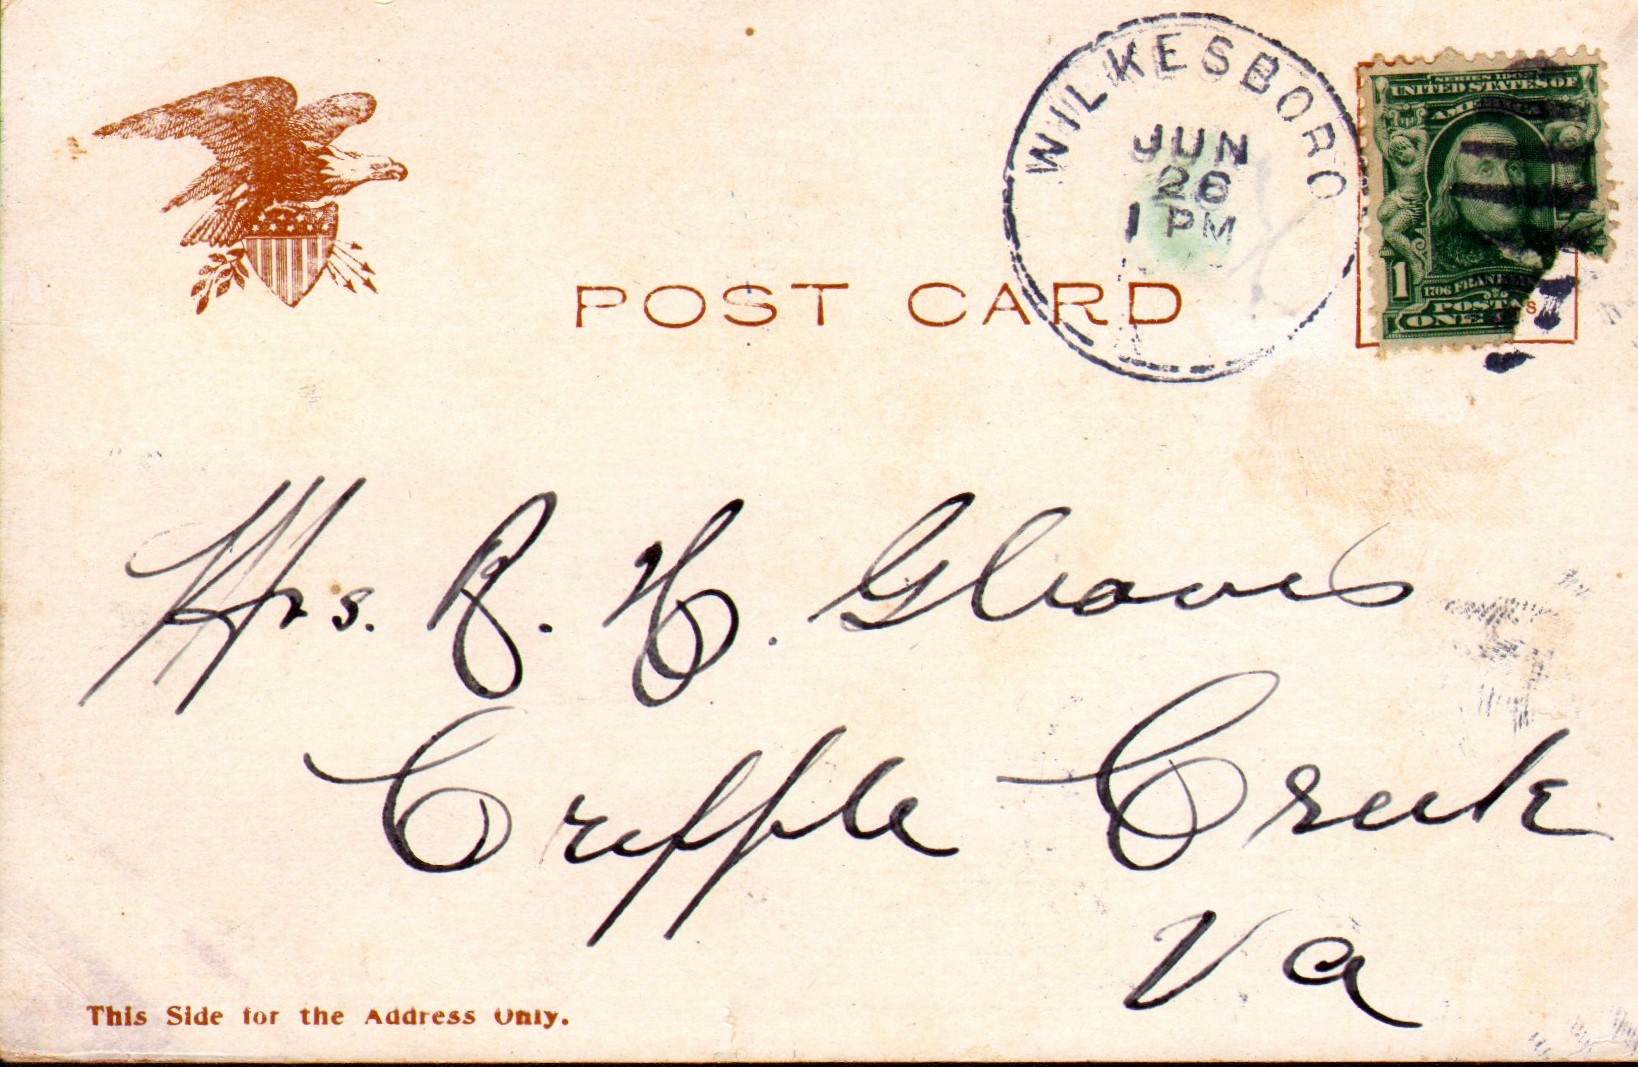 WILKESBORO
JUN
26
1 PM
SERIES 1902
UNITED STATES OF
AMERICA
1706 FRANKLIN
POSTAGE
1
ONE
POST CARD
Mrs. R. H. Gleaves
Cripple Creek
Va
This Side for the Address Only.